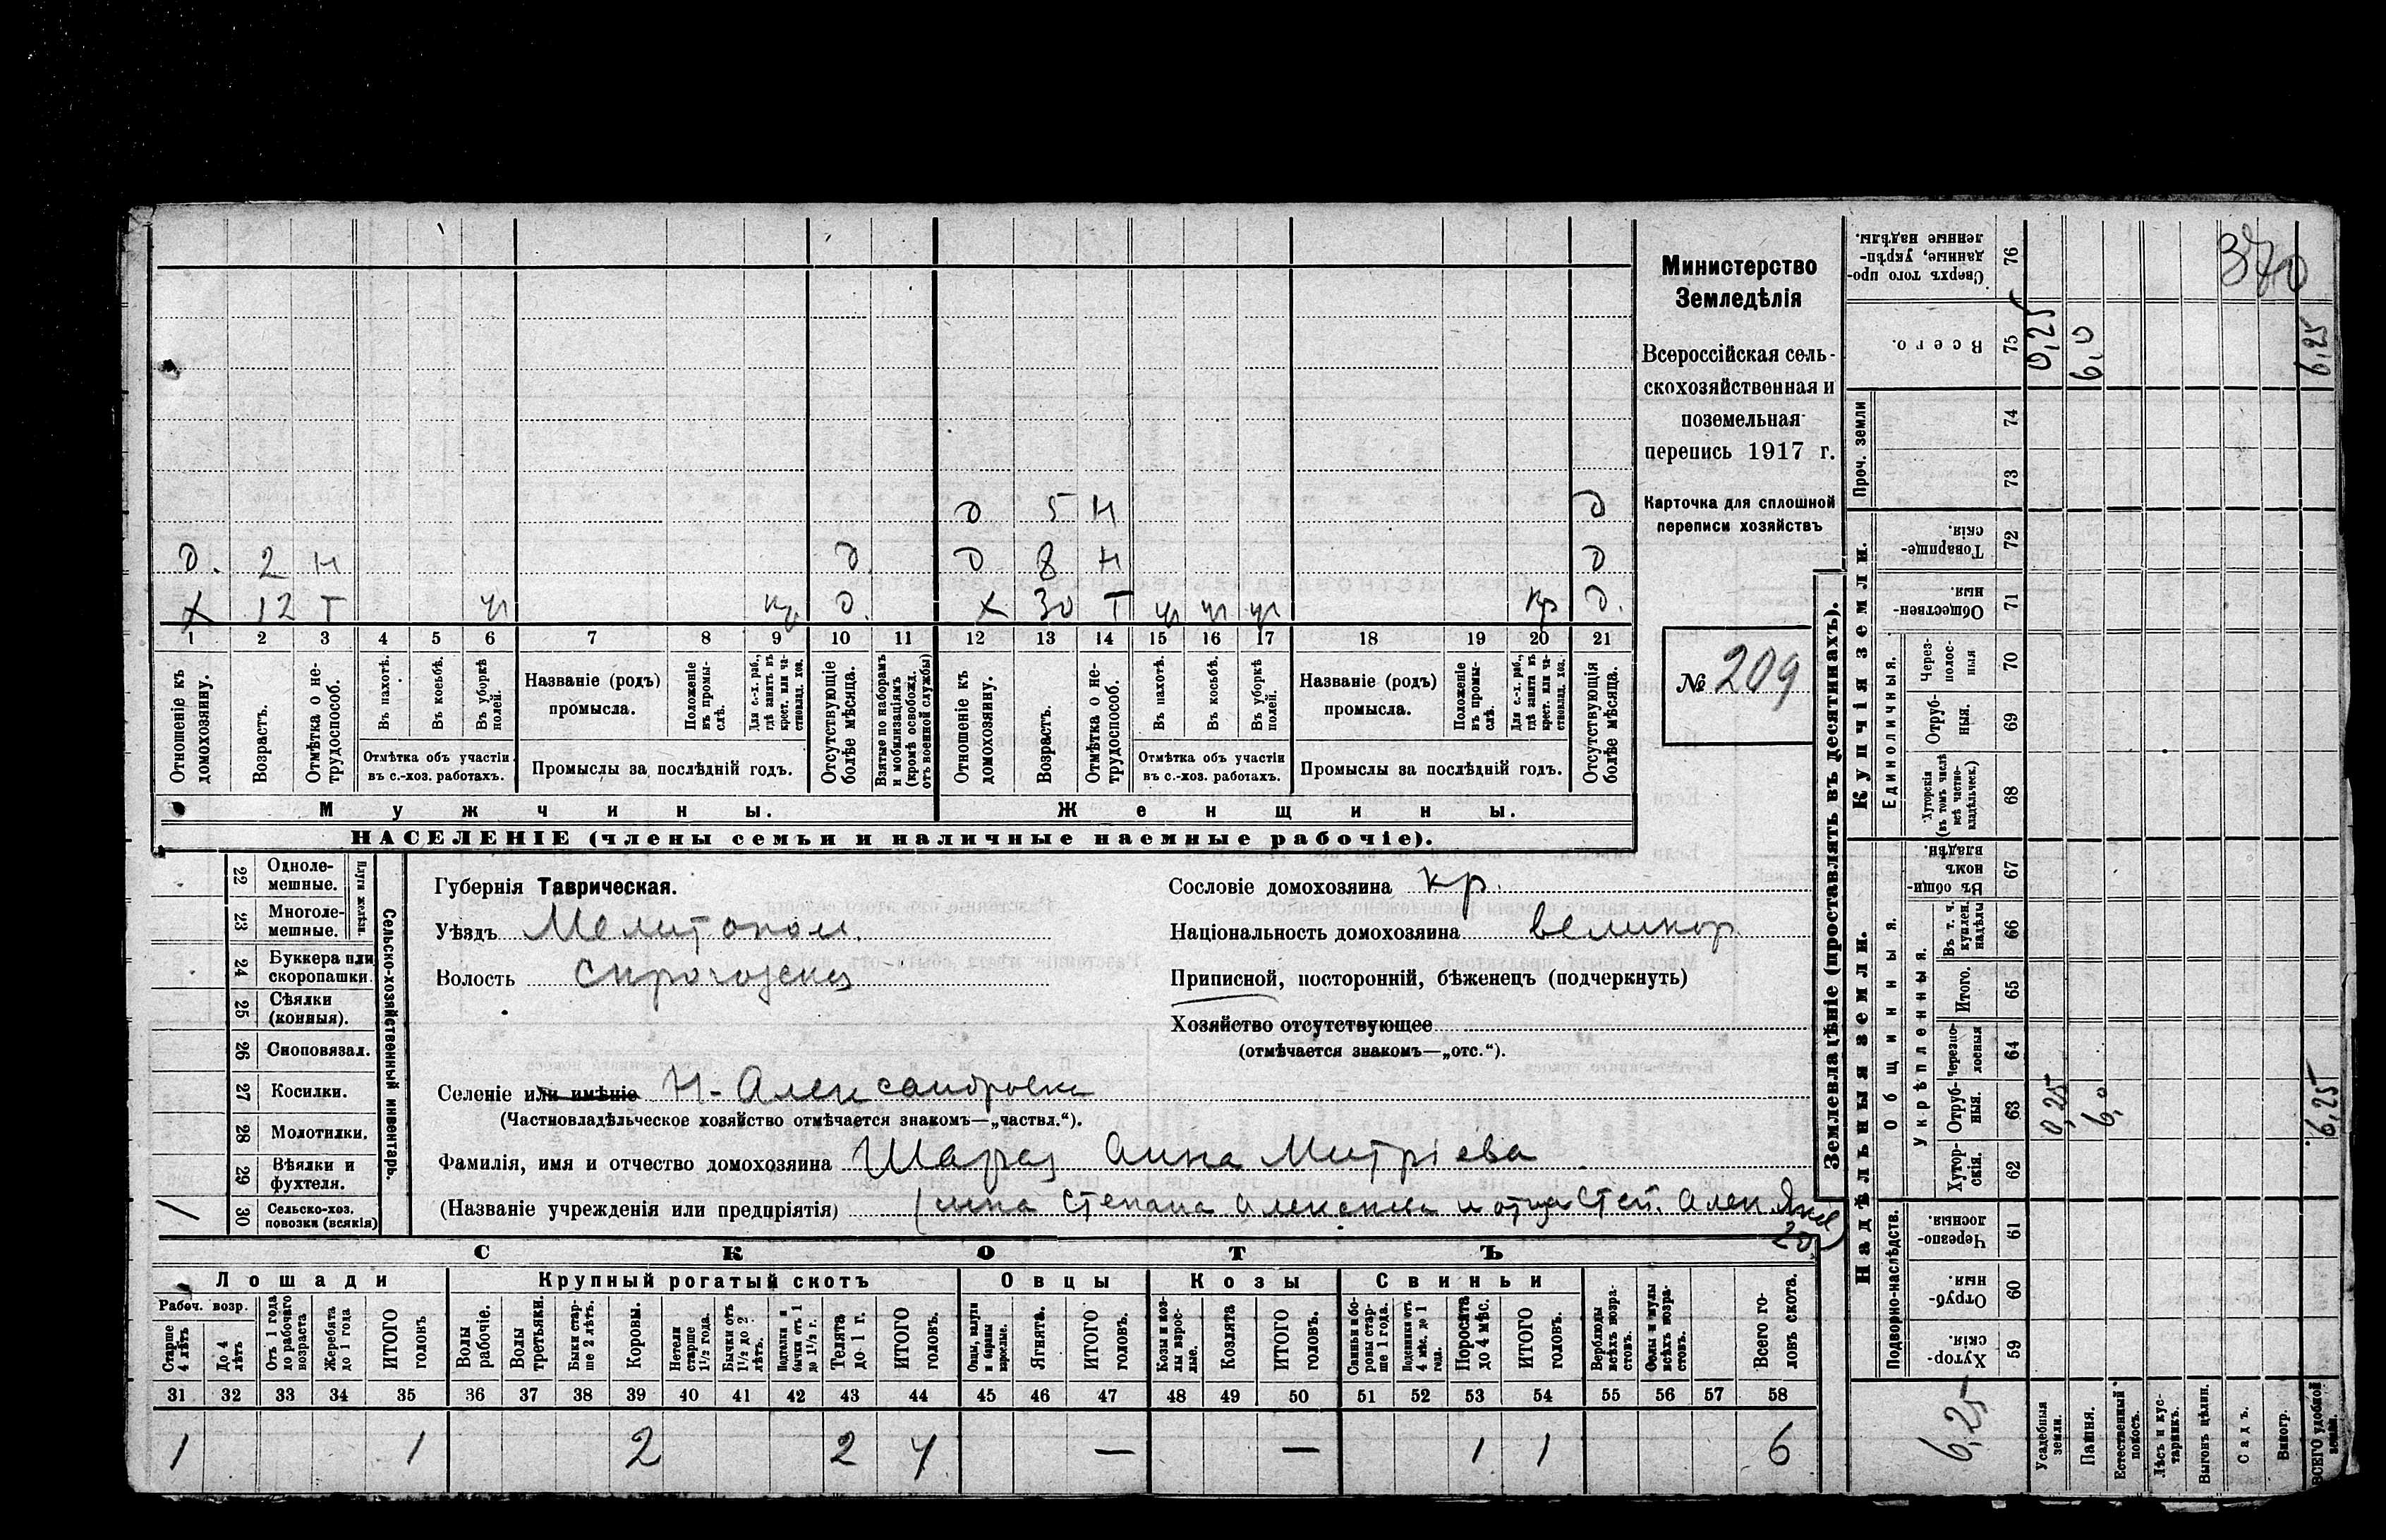 370
Министерство
Земледѣлія
Всероссійская сель-
скохозяйственная и
поземельная
перепись 1917 г.
Карточка для сплошной
переписи хозяйствъ
№ 209
д 5 н д
д. 2 н д. д 8 н д
х 12 т ур кр д. х 30 т ур ур ур кр д.
1 2 3 4 5 6 7 8 9 10 11 12 13 14 15 16 17 18 19 20 21
Отношеніе къ домохозяину.
Возрастъ.
Отмѣтка о не-трудоспособ.
Въ пахотѣ.
Въ косьбѣ.
Въ уборкѣ полей.
Отмѣтка объ участіи
въ с.-хоз. работахъ.
Названіе (родъ)
промысла.
Положеніе въ промы-слѣ.
Для с.-х. раб., гдѣ занятъ въ крест. или ча-ствовлад. хоз.
Промыслы за послѣдній годъ.
Отсутствующіе болѣе мѣсяца.
Взятые по наборамъ и мобилизаціямъ (кромѣ освобожд. отъ военной службы)
Отношеніе къ домохозяину.
Возрастъ.
Отмѣтка о не-трудоспособ.
Въ пахотѣ.
Въ косьбѣ.
Въ уборкѣ полей.
Отмѣтка объ участіи
въ с.-хоз. работахъ.
Названіе (родъ)
промысла.
Положеніе въ промы-слѣ.
Для с.-х. раб., гдѣ занята въ крест. или ча-ствовлад. хоз.
Промыслы за послѣдній годъ.
Отсутствующія болѣе мѣсяца.
Мужчины. Женщины.
НАСЕЛЕНІЕ (члены семьи и наличные наемные рабочіе).
Сельско-хозяйственный инвентарь.
Плуги желѣзн.
22 Одноле-мешные.
23 Многоле-мешные.
24 Буккера или скоропашки.
25 Сѣялки (конныя).
26 Сноповязал.
27 Косилки.
28 Молотилки.
29 Вѣялки и фухтеля.
30 Сельско-хоз. повозки (всякія) 1
Губернія Таврическая.
Уѣздъ Мелитопол.
Волость
Сословіе домохозяина кр.
Національность домохозяина великор
Приписной, посторонній, бѣженецъ (подчеркнуть)
Хозяйство отсутствующее
(отмѣчается знакомъ—„отс.“).
Селеніе или имѣніе Н-Александровка
(Частновладѣльческое хозяйство отмѣчается знакомъ—„частвл.“).
Фамилія, имя и отчество домохозяина Анна Митріева
(Названіе учрежденія или предпріятія) Степана
СКОТЪ
Лошади Крупный рогатый скотъ Овцы Козы Свиньи
Рабоч. возр.
Старше 4 лѣтъ
До 4 лѣтъ
Отъ 1 года до рабочаго возраста
Жеребята до 1 года
ИТОГО головъ
Волы рабочіе.
Волы третьяки.
Быки стар-ше 2 лѣтъ.
Коровы.
Нетели старше 1½ года.
Бычки отъ 1½ до 2 лѣтъ.
Подтелки и бычки отъ 1 до 1½ г.
Телята до 1 г.
ИТОГО головъ.
Овцы, валухи и бараны взрослые.
Ягнята.
ИТОГО головъ.
Козы и коз-лы взрос-лые.
Козлята
ИТОГО головъ.
Свиньи и бо-ровы стар-ше 1 года.
Подсвинки отъ 4 мѣс. до 1 года.
Поросята до 4 мѣс.
ИТОГО головъ.
Верблюды всѣхъ возра-стовъ.
Ослы и мулы всѣхъ возра-стовъ.
Всего го-ловъ скота.
31 32 33 34 35 36 37 38 39 40 41 42 43 44 45 46 47 48 49 50 51 52 53 54 55 56 57 58
1 1 2 2 4 — — 1 1 6
Землевладѣніе (проставлять въ десятинахъ).
Надѣльныя земли.
Подворно-наслѣдств.
Хутор-скія. 59
Отруб-ныя 60
Черезпо-лосныя. 61
Общинныя.
Укрѣпленныя.
Хутор-скія. 62
Отруб-ныя. 63
Черезпо-лосныя 64
Итого. 65
Въ т. ч. куплен. надѣлы 66
Въ общи-номъ владѣн. 67
Купчія земли.
Единоличныя.
Хуторскія (въ томъ числѣ всѣ частно-владѣльческ.) 68
Отруб-ныя. 69
Через-полос-ныя 70
Обществен-ныя. 71
Товарище-скія. 72
Проч. земли
73
74
Всего. 75
Сверхъ того про-данные, укрѣп-ленные надѣлы. 76
6,25
Усадебныя земли. 0,25 0,25
Пашня. 6,0 6,0
Естественный покосъ.
Лѣсъ и кус-тарникъ.
Выгонъ цѣлин.
Садъ.
Виногр.
ВСЕГО удобной земли. 6,25 6,25